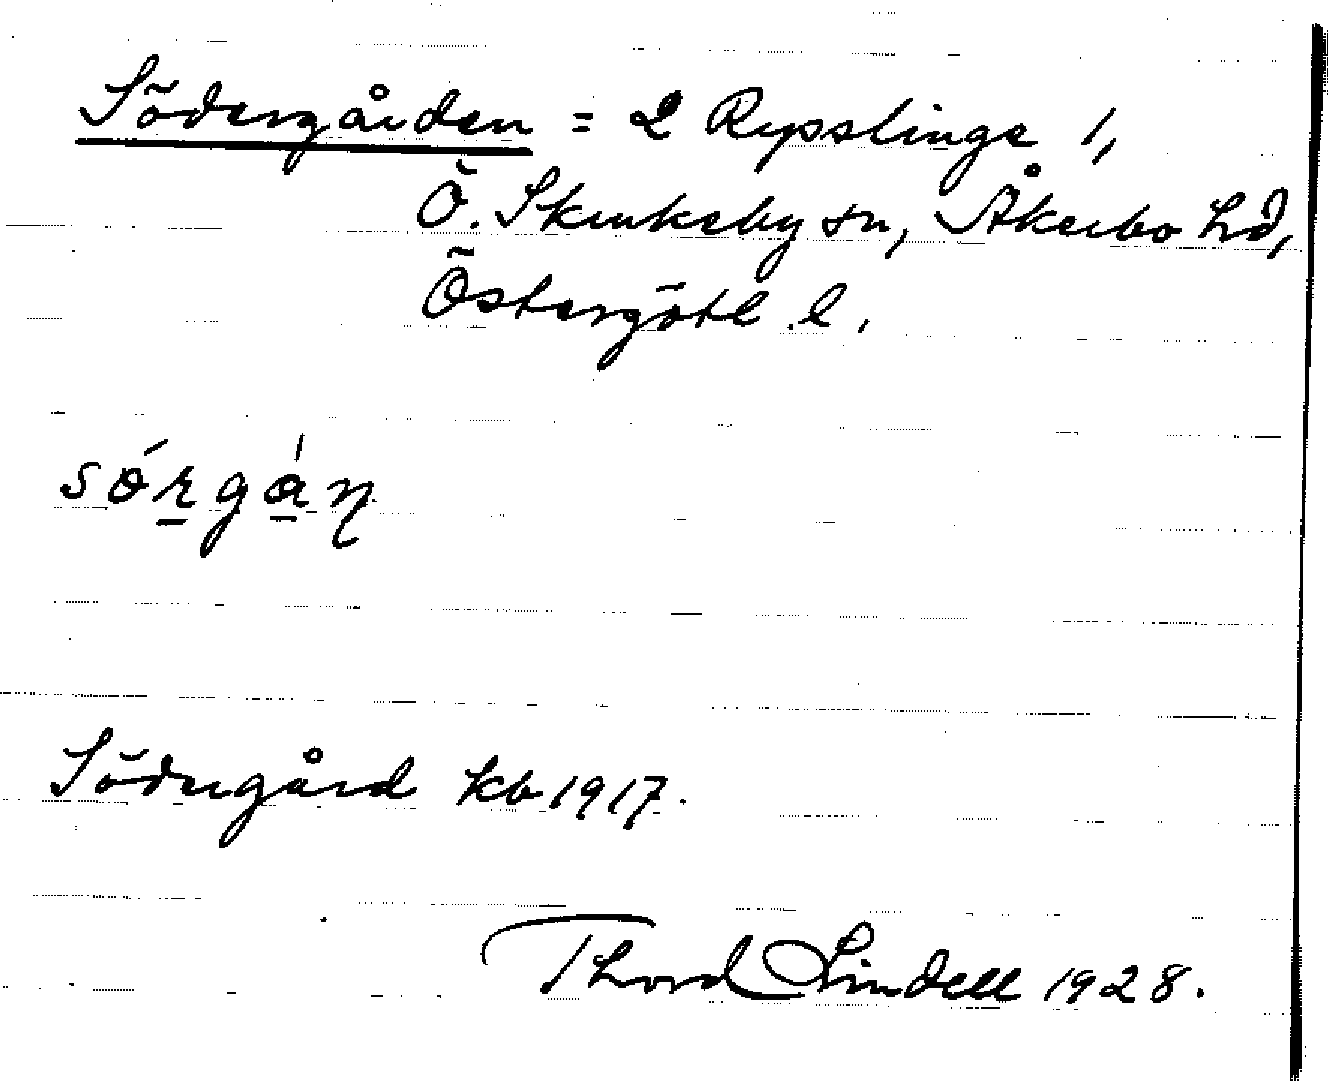 Södergården = 2 Rypslinge 1,
Ö. Skrukeby sn, Åkerbo hd,
Östergötl. l.
sǿrgán
Södergård kb 1917.
Thord Lindell 1928.